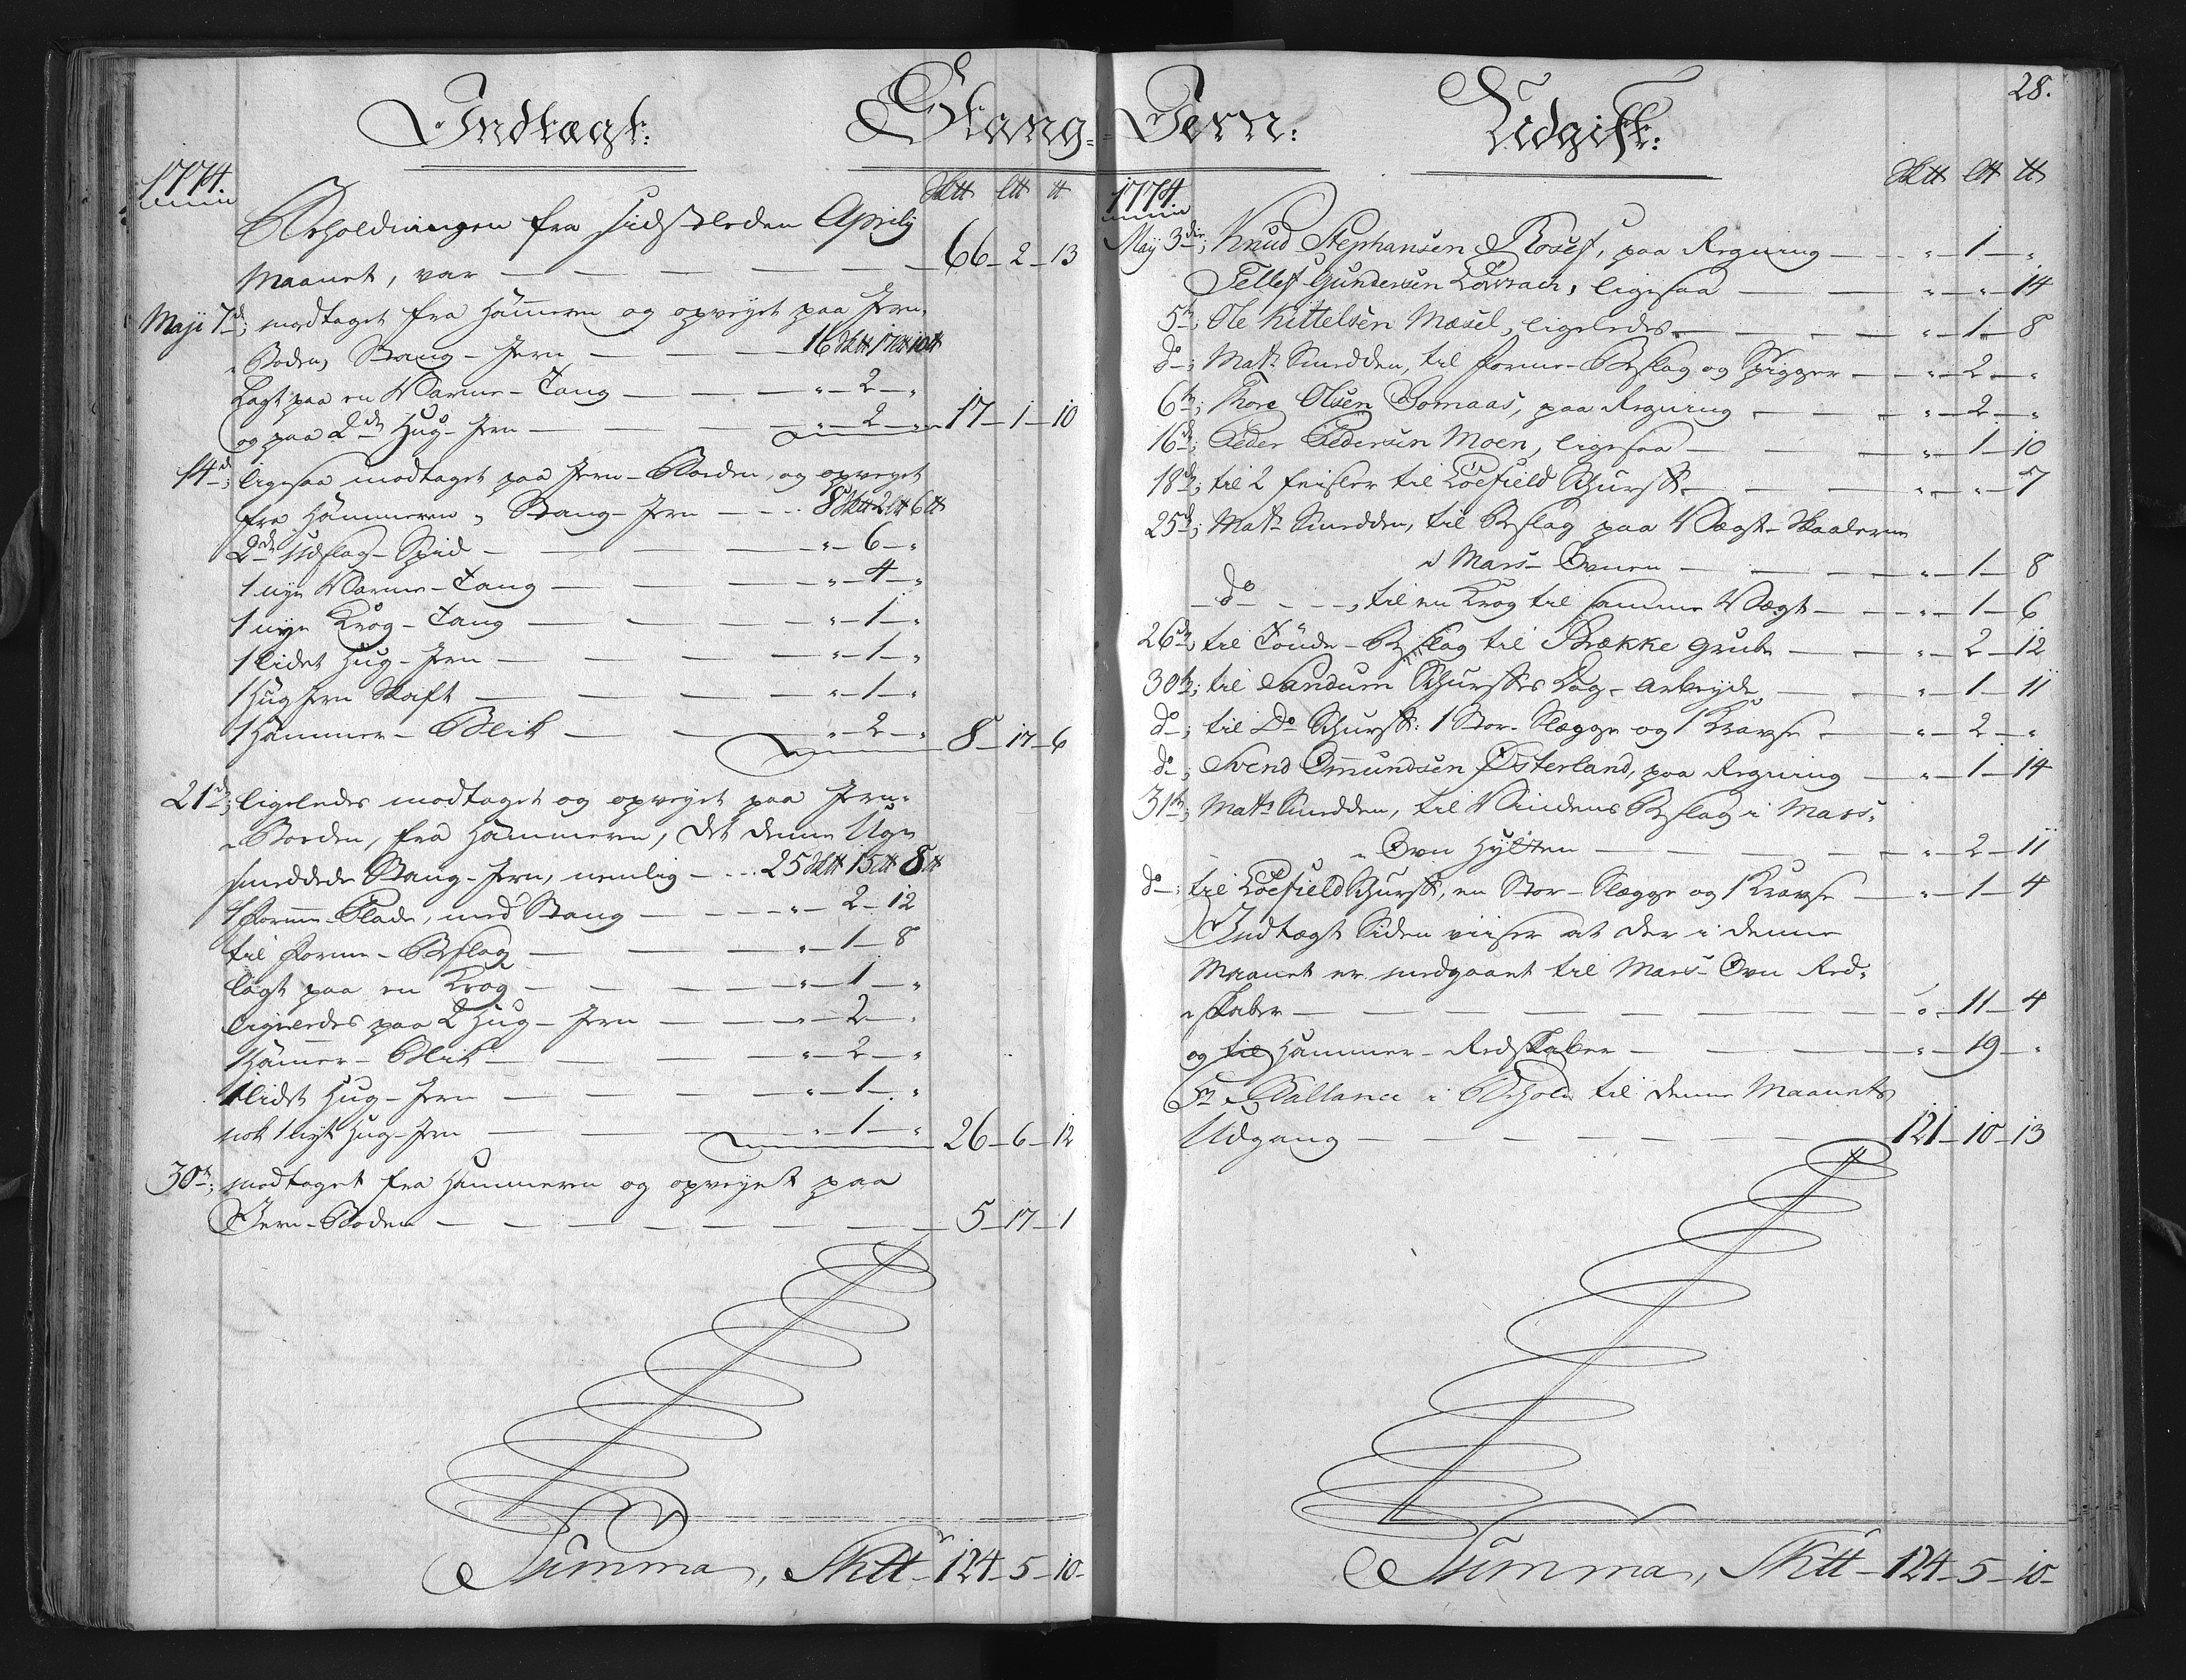 Indtægt:
Stang-
1774.
Sk℔ L℔ ℔
Beholdningen fra sidstleden Aprilij
Maanet, var — 66 - 2 - 13
Maji 7de; modtaget fra Hammeren og opvejet paa Jern-
Boden, Stang-Jern — 16 Sk℔ 17 L℔ 10 ℔
Lagt paa en Varme-Tang — " - 2 - "
og paa 2de Hug-Jern — " - 2 - " 17 - 1 - 10
14de; ligesaa modtaget paa Jern-Boden, og opveyet
fra Hammeren, Stang-Jern — 8 Sk℔ 2 L℔ 6 ℔
2de Udslag-Spid — " - 6 - "
1 nye Varme-Tang — " - 4 - "
1 nye Krog-Tang — " - 1 - "
1 lidet Hug-Jern — " - 1 - "
1 Hug Jern Skaft — " - 1 - "
1 Hammer-Blik — " - 2 - " 8 - 17 - 6
21de; ligeledes modtaget og opvejet paa Jern-
Boden, fra Hammeren, det denne Uge
smeddede Stang-Jern, nemlig — 25 Sk℔ 15 L℔ 8 ℔
1 Forme-Plade, med Stang — " - 2 - 12
til Forme-Beslag — " - 1 - 8
lagt paa en Krog — " - 1 - "
ligeledes paa 2 Hug-Jern — " - 2 - "
1 Hammer-Blik — " - 2 - "
1 lidet Hug-Jern — " - 1 - "
nok 1 nyt Hug-Jern — " - 1 - " 26 - 6 - 12
30te; modtaget fra Hammeren og opvejet paa
Jern-Boden — 5 - 17 - 1
Summa, Sk℔ - 124 - 5 - 10 -
28.
Jern:
Udgift:
1774.
Sk℔ L℔ ℔
Maij 3die; Knud Stephansen Rosef, paa Regning — " - 1 - "
Tellef Gundersen , ligesaa — " - " - 14
5te; Ole Kittelsen Mæsel, ligeledes — " - 1 - 8
do; Mats Smedden, til Forme-Beslag og Spigger — " - 2 - "
6te; Thore Olsen Bomaas, paa Regning — " - 2 - "
16de; Peder Pedersen Moen, ligesaa — " - 1 - 10
18de; til 2 Feisler til Löefield Schurff — " - " - 7
25de; Mats Smedden, til Beslag paa Vægt-Skaalerne
i Mars-Ovnen — " - 1 - 8
do — , til en Krog til samme Vægt — " - 1 - 6
26de; til Tönde-Beslag til Brække Grube — " - 2 - 12
30te; til Sandum Schurffes Dag-Arbejde — " - 1 - 11
do; til Do Schurff: 1 Stor-Slægge og 1 Kradse — " - 2 - "
do; Svend Omundsen Østerland, paa Regning — " - 1 - 14
31te; Mats Smedden, til Vindens Beslag i Mars-
Ovn Hytten — " - 2 - 11
do; til Löefield Schurff, en Stor-Slægge og 1 Kradse — " - 1 - 4
Indtægt Siden viiser at der i denne
Maanet er medgaaet til Mars-Ovn Red-
skaber — " - 11 - 4
og til Hammer-Redskaber — " - 19 - "
Ballance i Behold til denne Maanets
Udgang — 121 - 10 - 13
Summa, Sk℔ - 124 - 5 - 10 -